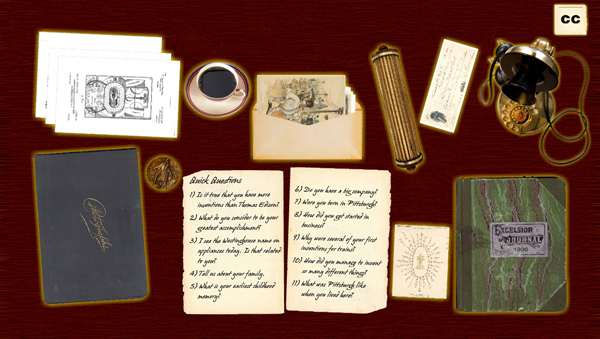 CC
Quick Questions
1) Is it true that you have more
inventions than Thomas Edison?
2) What do you consider to be your
greatest accomplishment?
3) I see the Westinghouse name on
appliances today. Is that related
to you?
4) Tell us about your family.
5) What is your earliest childhood
memory?
6) Do you have a big company?
7) Were you born in Pittsburgh?
8) How did you get started in
business?
9) Why were several of your first
inventions for trains?
10) How did you manage to invent
so many different things?
11) What was Pittsburgh like
when you lived here?
Photographs
EXCELSIOR
JOURNAL
1906